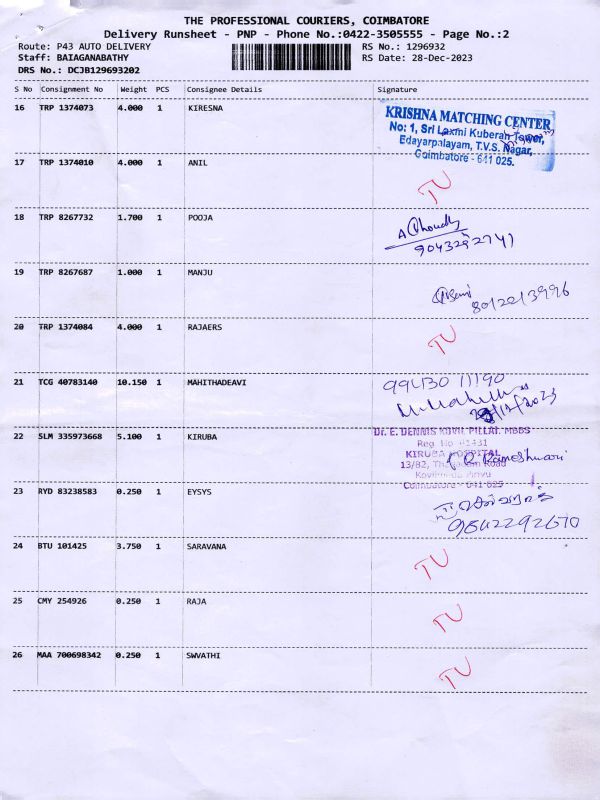 THE PROFESSIONAL COURIERS, COIMBATORE
Delivery Runsheet - PNP - Phone No.:0422-3505555 - Page No.:2
Route: P43 AUTO DELIVERY
RS No.: 1296932
Staff: BAIAGANABATHY
RS Date: 28-Dec-2023
DRS No.: DCJB129693202
S No Consignment No Weight PCS Consignee Details Signature
16 TRP 1374073 4.000 1 KIRESNA
KRISHNA MATCHING CENTER
No: 1, Sri Laxmi Kuberan Tower,
Edayarpalayam, T.V.S. Nagar,
Coimbatore - 641 025.
17 TRP 1374010 4.000 1 ANIL
TU
18 TRP 8267732 1.700 1 POOJA
A Choudhy
9043292741
19 TRP 8267687 1.000 1 MANJU
8012213996
20 TRP 1374084 4.000 1 RAJAERS
TU
21 TCG 40783140 10.150 1 MAHITHADEAVI
99430 11190
28/12/2023
22 SLM 335973668 5.100 1 KIRUBA
Dr. E. DENNIS KOVIL PILLAI. MBBS
Reg No 41431
KIRUBA HOSPITAL
13/82, Road
Coimbatore - 641 025
R Rameshwari
23 RYD 83238583 0.250 1 EYSYS
9842292670
24 BTU 101425 3.750 1 SARAVANA
TU
25 CMY 254926 0.250 1 RAJA
TU
26 MAA 700698342 0.250 1 SWVATHI
TU